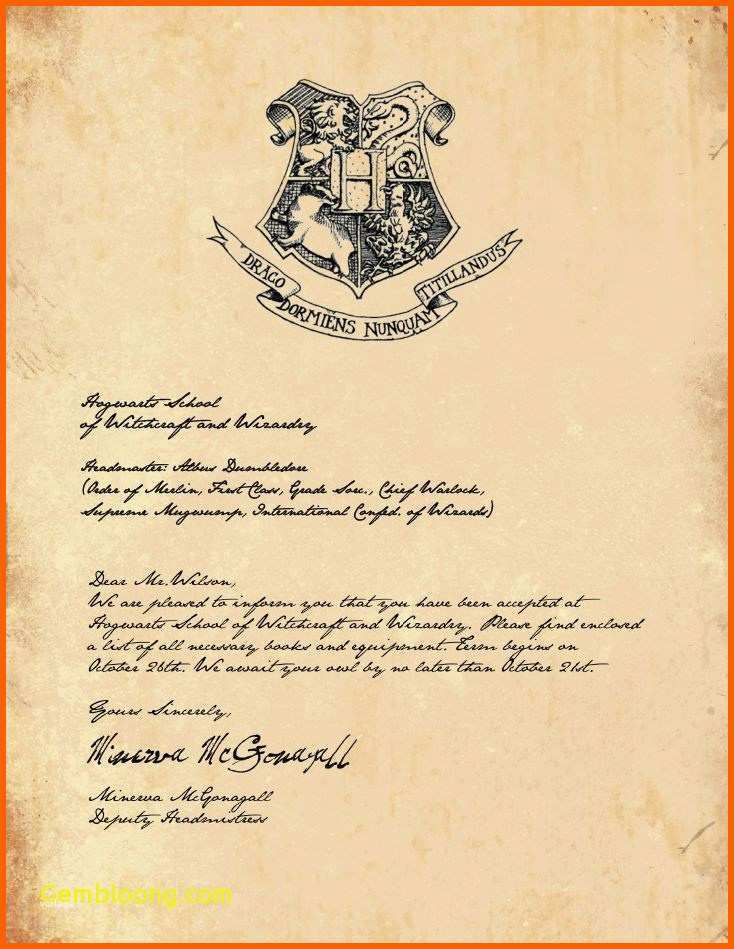 H
DRACO DORMIENS NUNQUAM TITILLANDUS
Hogwarts School
of Witchcraft and Wizardry
Headmaster: Albus Dumbledore
(Order of Merlin, First Class, Grade Sorc., Chief Warlock,
Supreme Mugwump, International Confed. of Wizards)
Dear Mr.Wilson,
We are pleased to inform you that you have been accepted at
Hogwarts School of Witchcraft and Wizardry. Please find enclosed
a list of all necessary books and equipment. Term begins on
October 26th. We await your owl by no later than October 21st.
Yours Sincerely,
Minerva McGonagall
Minerva McGonagall
Deputy Headmistress
Gembloong.com